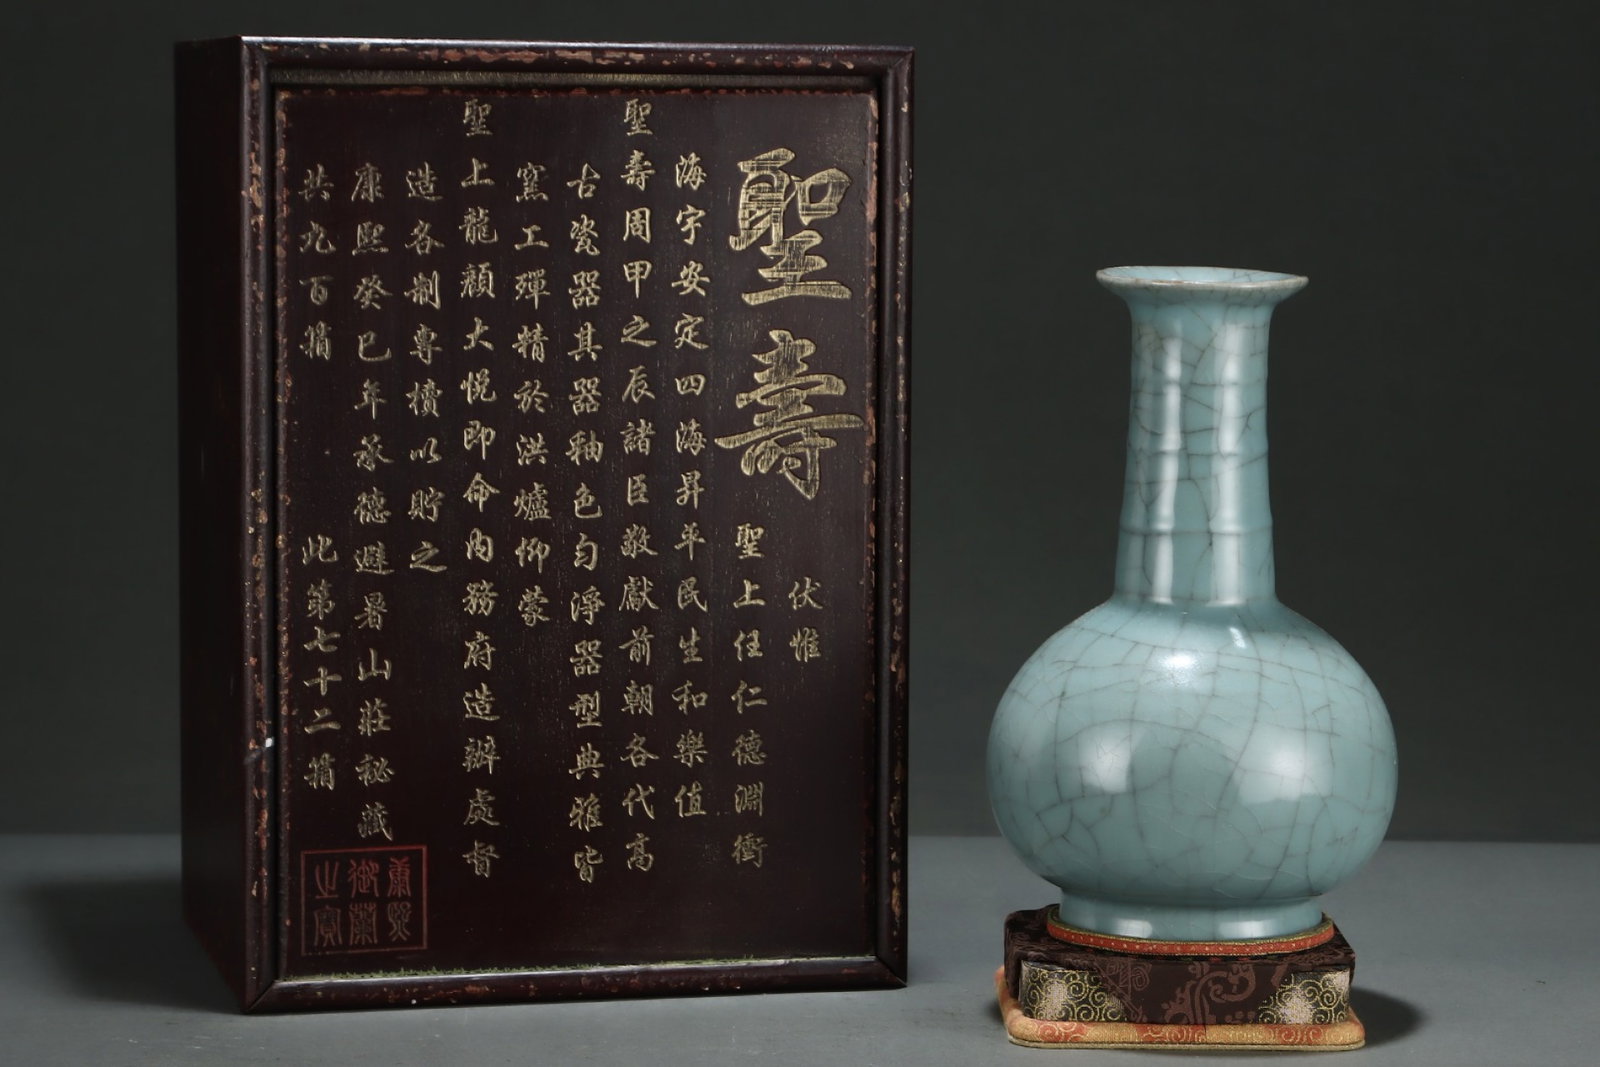 聖壽
伏惟
聖上任仁德淵衝
海宇安定四海昇平民生和樂值
聖壽周甲之辰諸臣敬獻前朝各代高
古瓷器其器釉色勻淨器型典雅皆
窯工殫精於洪爐仰蒙
聖上龍顏大悅即命內務府造辦處督
造各制專櫝以貯之
康熙癸巳年承德避暑山莊秘藏
共九百箱
此第七十二箱
康熙
御
之寶